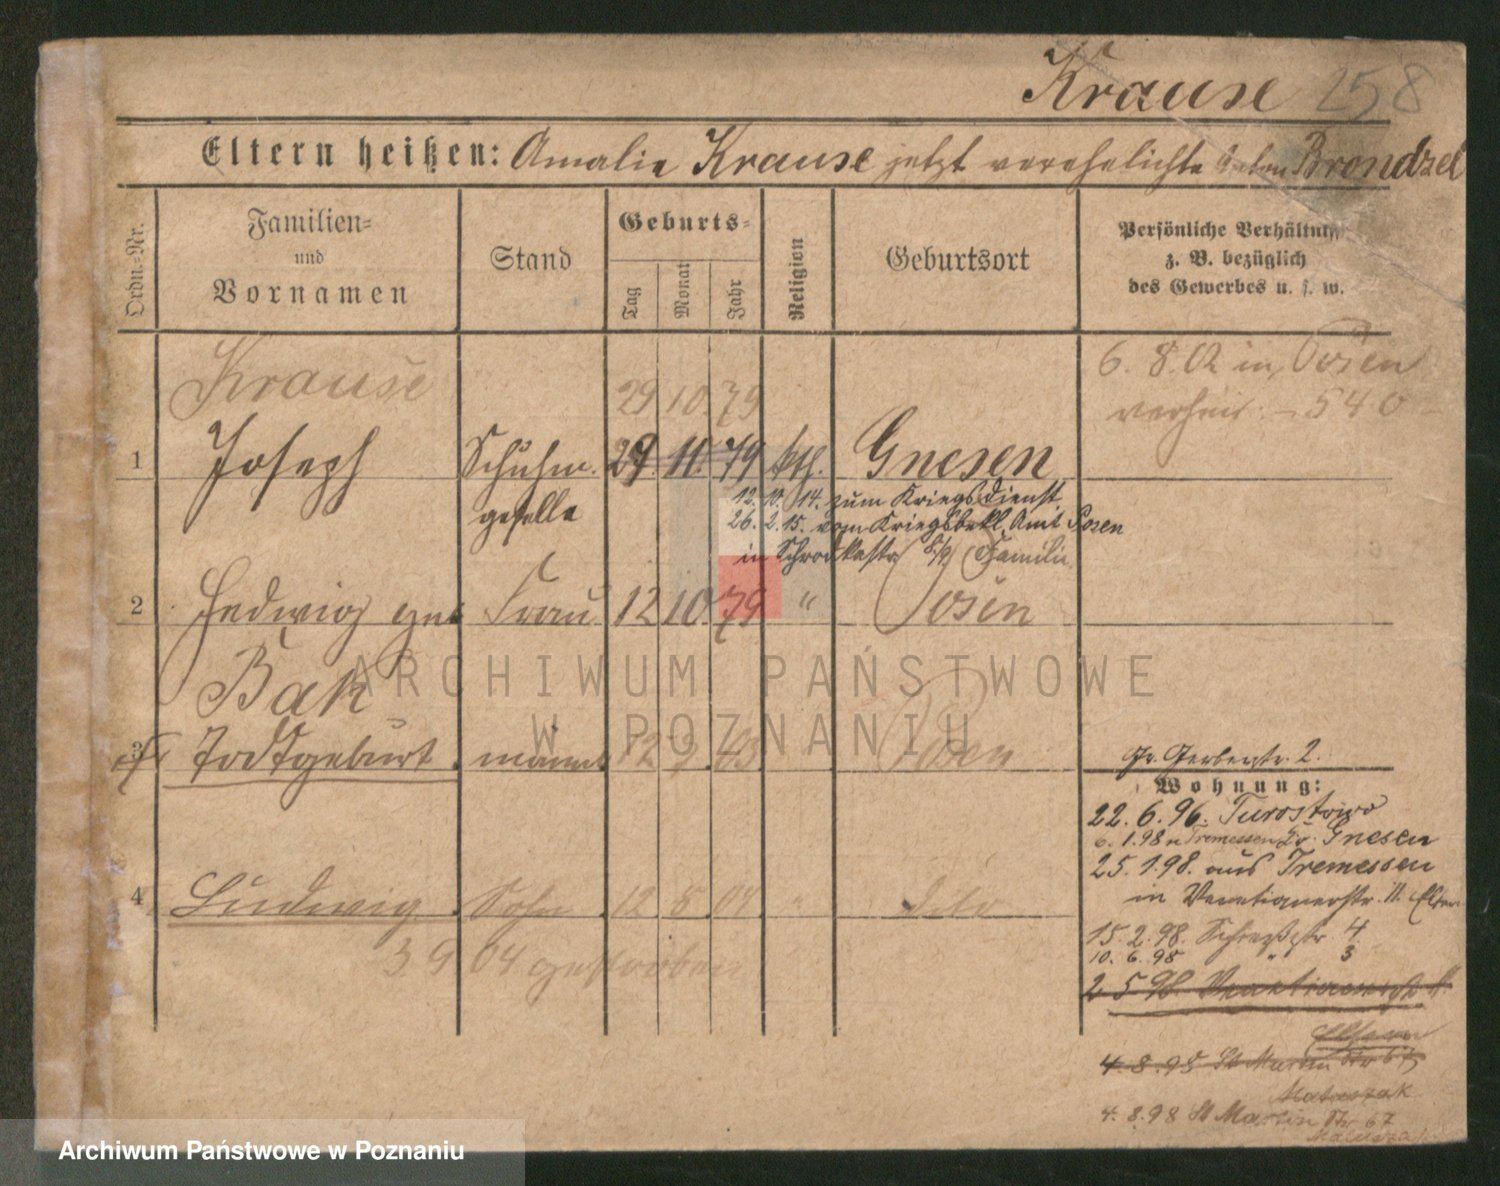 Krause 258
Eltern heißen: Amalie Krause jetzt verehelichte Anton Brondzel
Ordn.-Nr.
Familien-
und
Vornamen
Stand
Geburts-
Tag
Monat
Jahr
Religion
Geburtsort
Persönliche Verhältniss
z. B. bezüglich
des Gewerbes u. s. w.
Krause
29 10. 79
6. 8. 02 in Posen
verheir. 540
1 Joseph Schuhm. 29. 11. 79 kth. Gnesen
geselle
12. 10. 14. zum Kriegsdienst
26. 2. 15. vom Kriegsbekl. Amt Posen
in Schrodkastr Familie
2 Hedwig geb Frau 12 10 79 " Posen
Bak
3 Todtgeburt männl 12 9 03 Posen
4 Ludwig Sohn 12 8 04 " dito
3 9 04 gestorben
Gr. Gerberstr. 2.
Wohnung:
22. 6. 96. Turostowo
6. 1. 98 n Tremessen Gnesen
25. 1. 98. aus Tremessen
in Venetianerstr. 11. Eltern
15. 2. 98. 4
10. 6. 98 " 3
2 5 98 Venetianerstr 11.
Eltern
4. 8. 98 St Martin Str 67
Matuszak
4. 8. 98 St Martin Str 67
Matuszak
ARCHIWUM PAŃSTWOWE
W POZNANIU
Archiwum Państwowe w Poznaniu